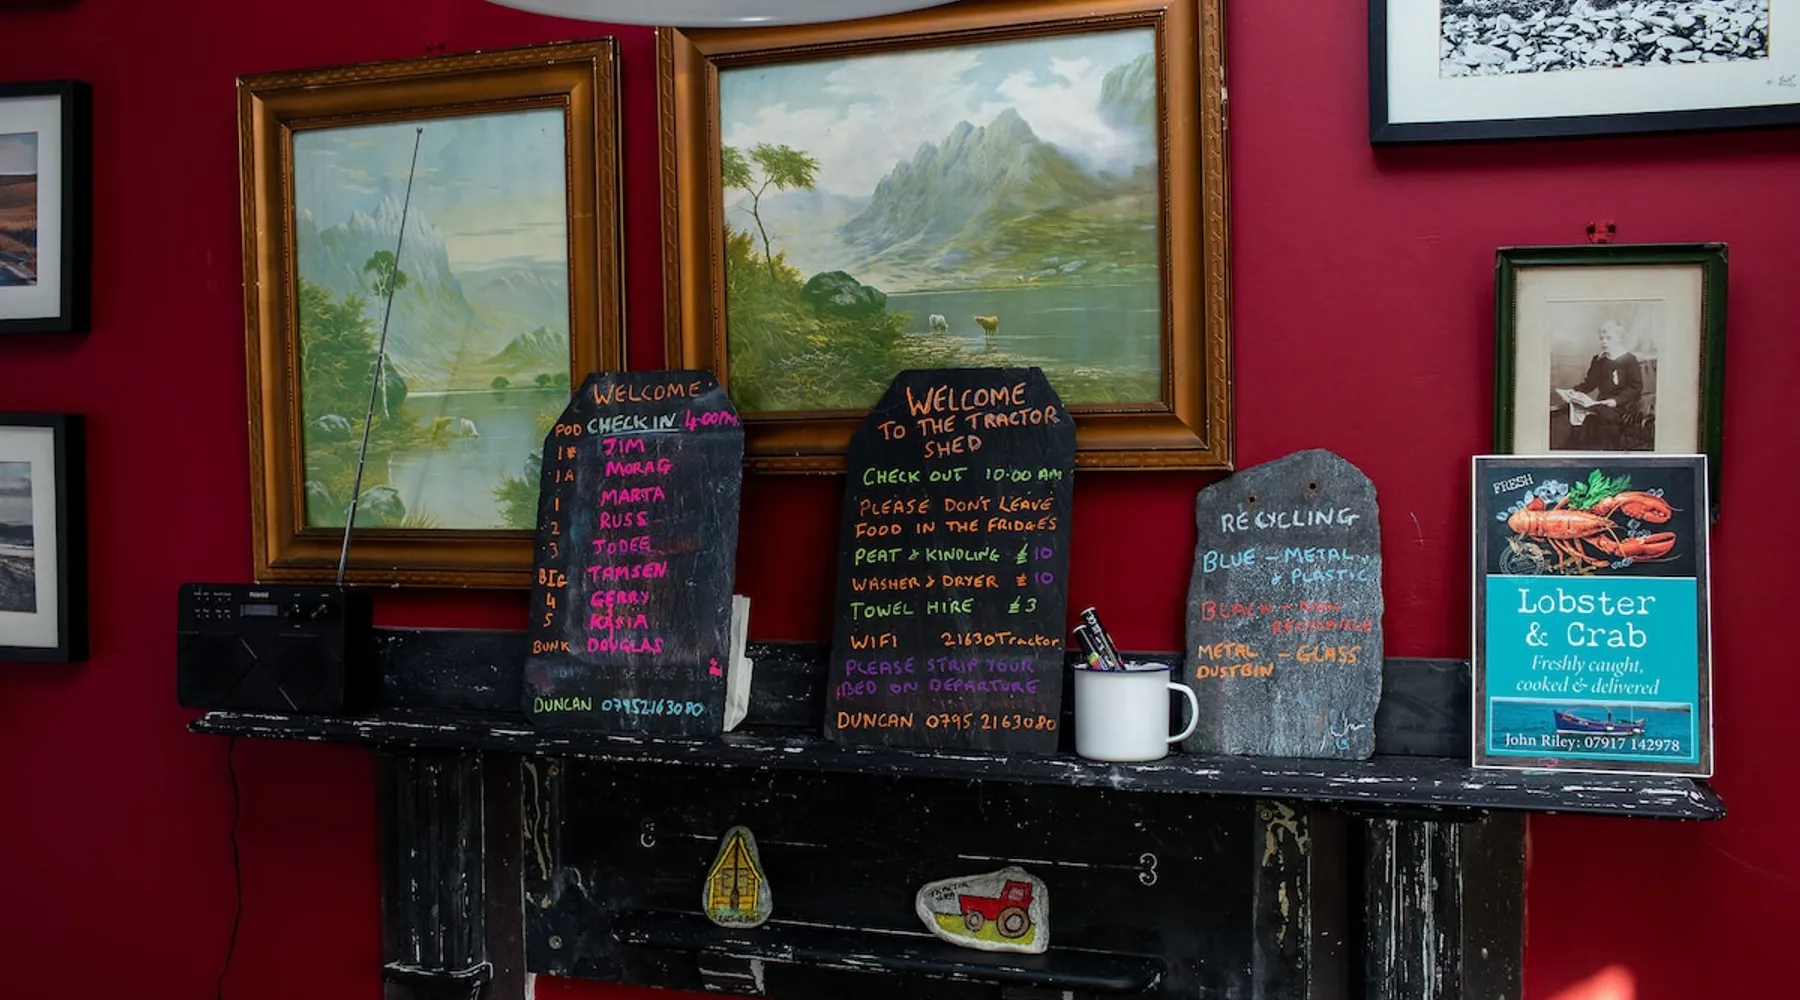 WELCOME
POD CHECK IN 4:00PM
1* JIM
1A MORAG
1 MARTA
2 RUSS
3 JODEE
BIG TAMSEN
4 GERRY
5 KASIA
BUNK DOUGLAS
DUNCAN 07952163080
WELCOME
TO THE TRACTOR
SHED
CHECK OUT 10:00 AM
PLEASE DONT LEAVE
FOOD IN THE FRIDGES
PEAT & KINDLING £10
WASHER & DRYER £10
TOWEL HIRE £3
WIFI 21630Tractor
PLEASE STRIP YOUR
BED ON DEPARTURE
DUNCAN 0795 2163080
RECYCLING
BLUE - METAL
& PLASTIC
BLACK - NON
RECYCLABLE
METAL - GLASS
DUSTBIN
FRESH
Lobster
& Crab
Freshly caught,
cooked & delivered
John Riley: 07917 142978
Polaroid
TRACTOR